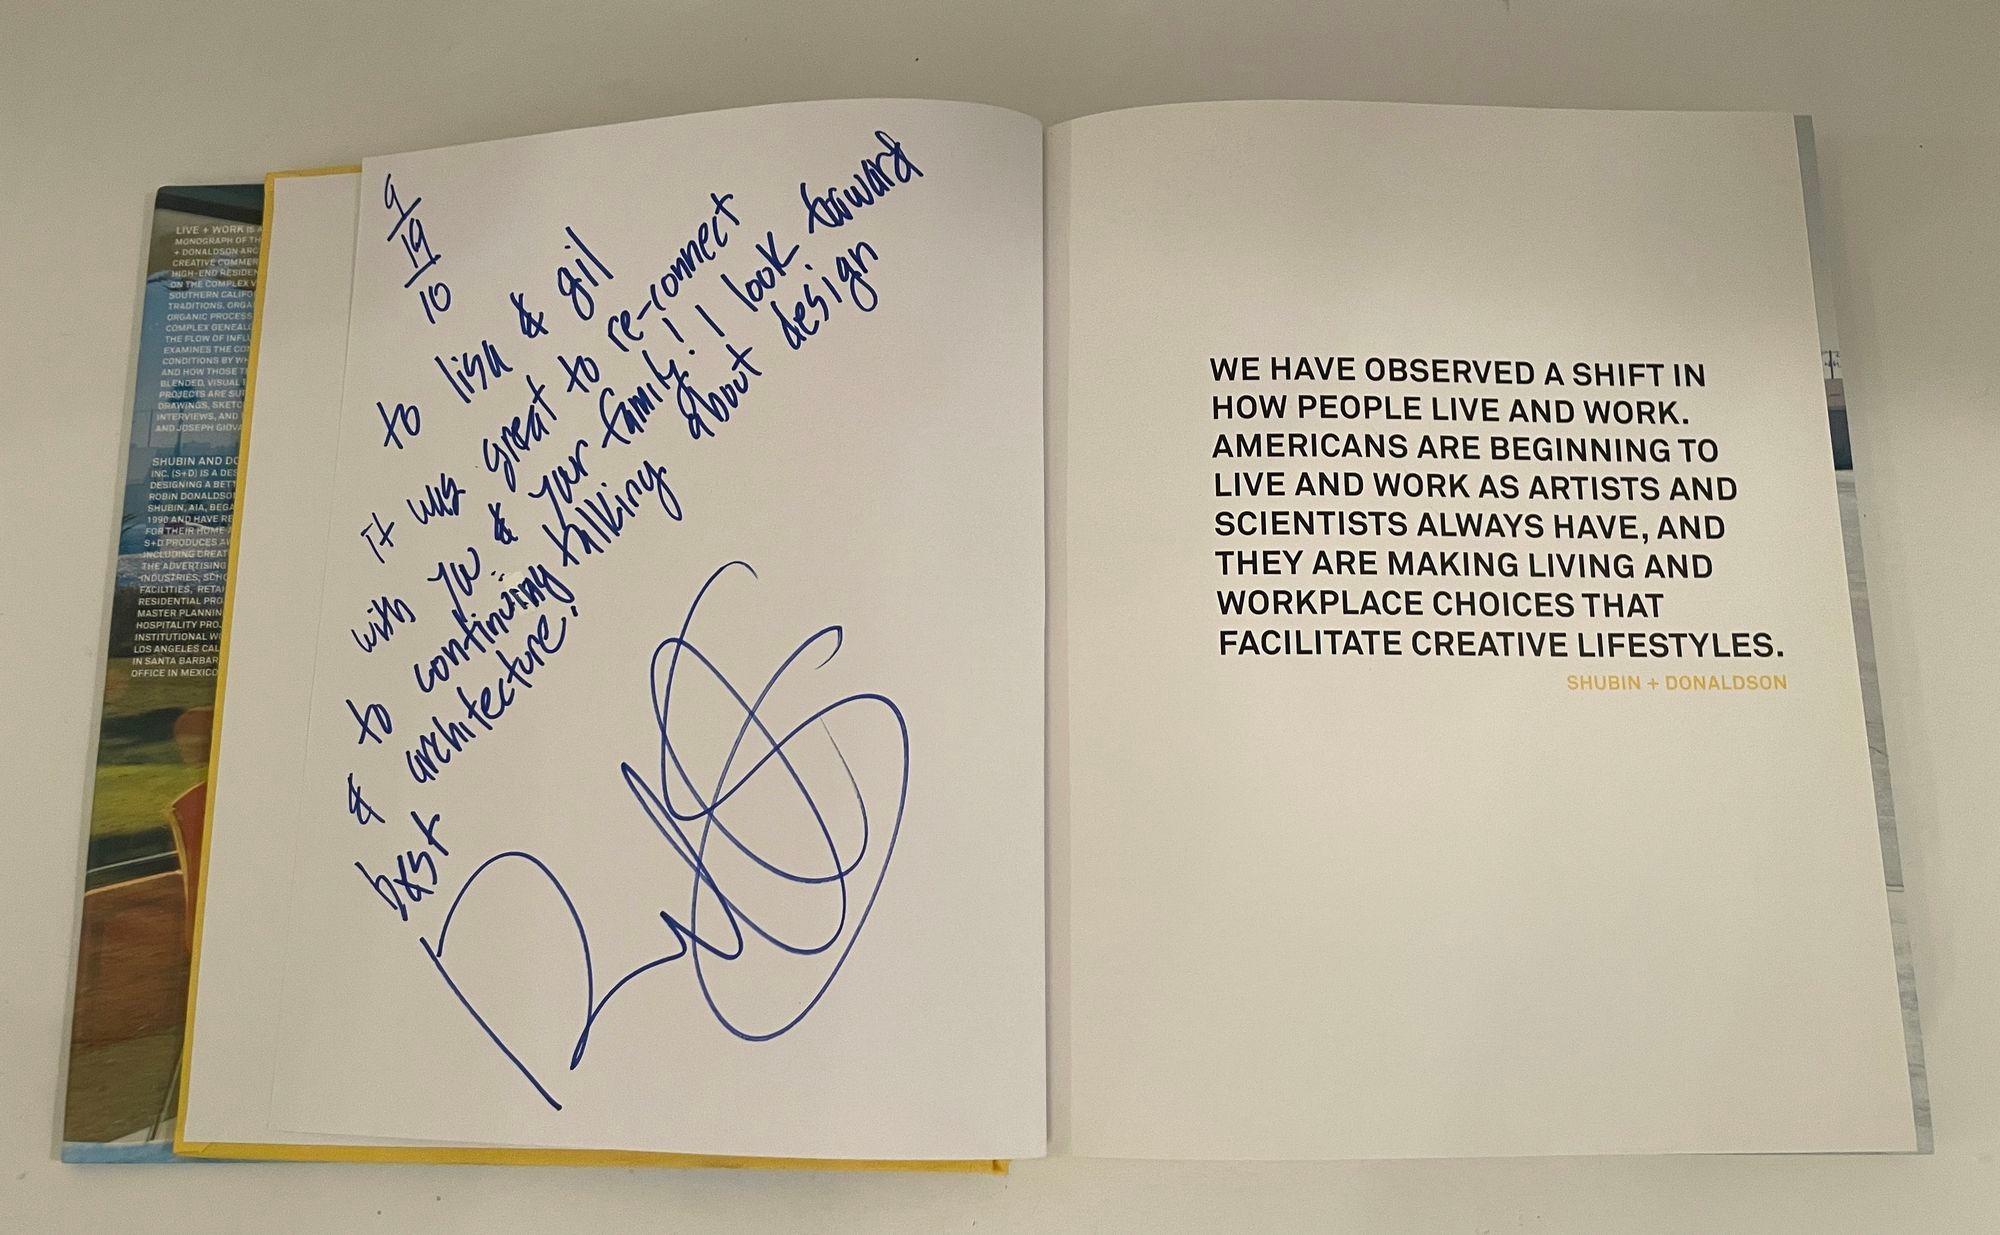 LIVE + WORK IS A
MONOGRAPH OF TH
+ DONALDSON ARC
CREATIVE COMMER
HIGH-END RESIDEN
ON THE COMPLEX V
SOUTHERN CALIFO
TRADITIONS, ORGA
ORGANIC PROCESS
COMPLEX GENEALO
THE FLOW OF INFLU
EXAMINES THE CON
CONDITIONS BY WH
AND HOW THOSE T
BLENDED, VISUAL
PROJECTS ARE SUP
DRAWINGS, SKETC
INTERVIEWS, AND
AND JOSEPH GIOVA
SHUBIN AND DO
INC. (S+D) IS A DES
DESIGNING A BETT
ROBIN DONALDSO
SHUBIN, AIA, BEGA
1990 AND HAVE RE
FOR THEIR HOME
S+D PRODUCES AW
INCLUDING CREAT
THE ADVERTISING
INDUSTRIES, SCHO
FACILITIES, RETAI
RESIDENTIAL PRO
MASTER PLANNIN
HOSPITALITY PROJ
INSTITUTIONAL W
LOS ANGELES CAL
IN SANTA BARBAR
OFFICE IN MEXICO
9
19
10
to lisa & gil
it was great to re-connect
with you & your family! I look forward
to continuing talking about design
& architecture!
best
WE HAVE OBSERVED A SHIFT IN
HOW PEOPLE LIVE AND WORK.
AMERICANS ARE BEGINNING TO
LIVE AND WORK AS ARTISTS AND
SCIENTISTS ALWAYS HAVE, AND
THEY ARE MAKING LIVING AND
WORKPLACE CHOICES THAT
FACILITATE CREATIVE LIFESTYLES.
SHUBIN + DONALDSON